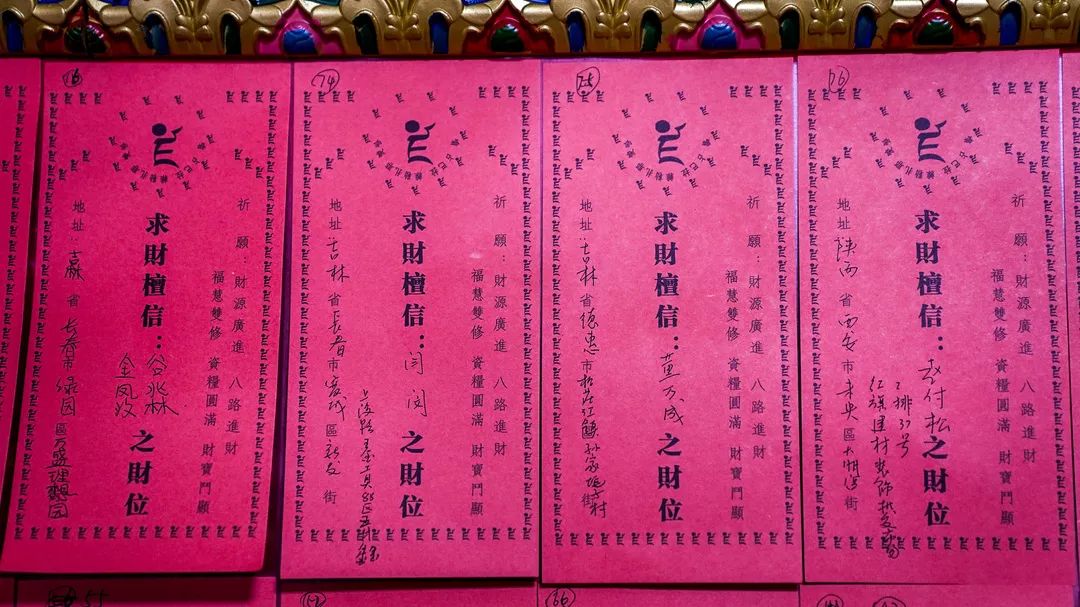 祈願：財源廣進 八路進財
福慧雙修 資糧圓滿 財寶門顯
求財檀信：谷兆林 之財位
地址：吉林省 长春市绿园區万盛理想园
74
祈願：財源廣進 八路進財
福慧雙修 資糧圓滿 財寶門顯
求財檀信：闫 之財位
地址：吉林省長春市宽城區新发街
75
祈願：財源廣進 八路進財
福慧雙修 資糧圓滿 財寶門顯
求財檀信：董万成之財位
地址：吉林省德惠市松花江鎮孙家 村街
76
祈願：財源廣進 八路進財
福慧雙修 資糧圓滿 財寶門顯
求財檀信：赵付松之財位
排37号
红旗建材装饰批发
地址：陕西省西安市未央區大明宫街
54
66